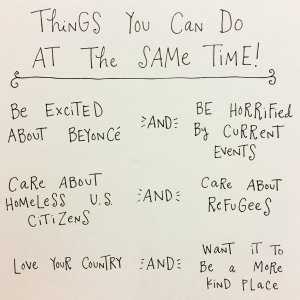 THINGS YOU CAN DO
AT THE SAME TIME!
BE EXCITED
ABOUT BEYONCÉ
AND
BE HORRIFIED
BY CURRENT
EVENTS
CARE ABOUT
HOMELESS U.S.
CITIZENS
AND
CARE ABOUT
REFUGEES
LOVE YOUR COUNTRY
AND
WANT IT TO
BE A MORE
KIND PLACE